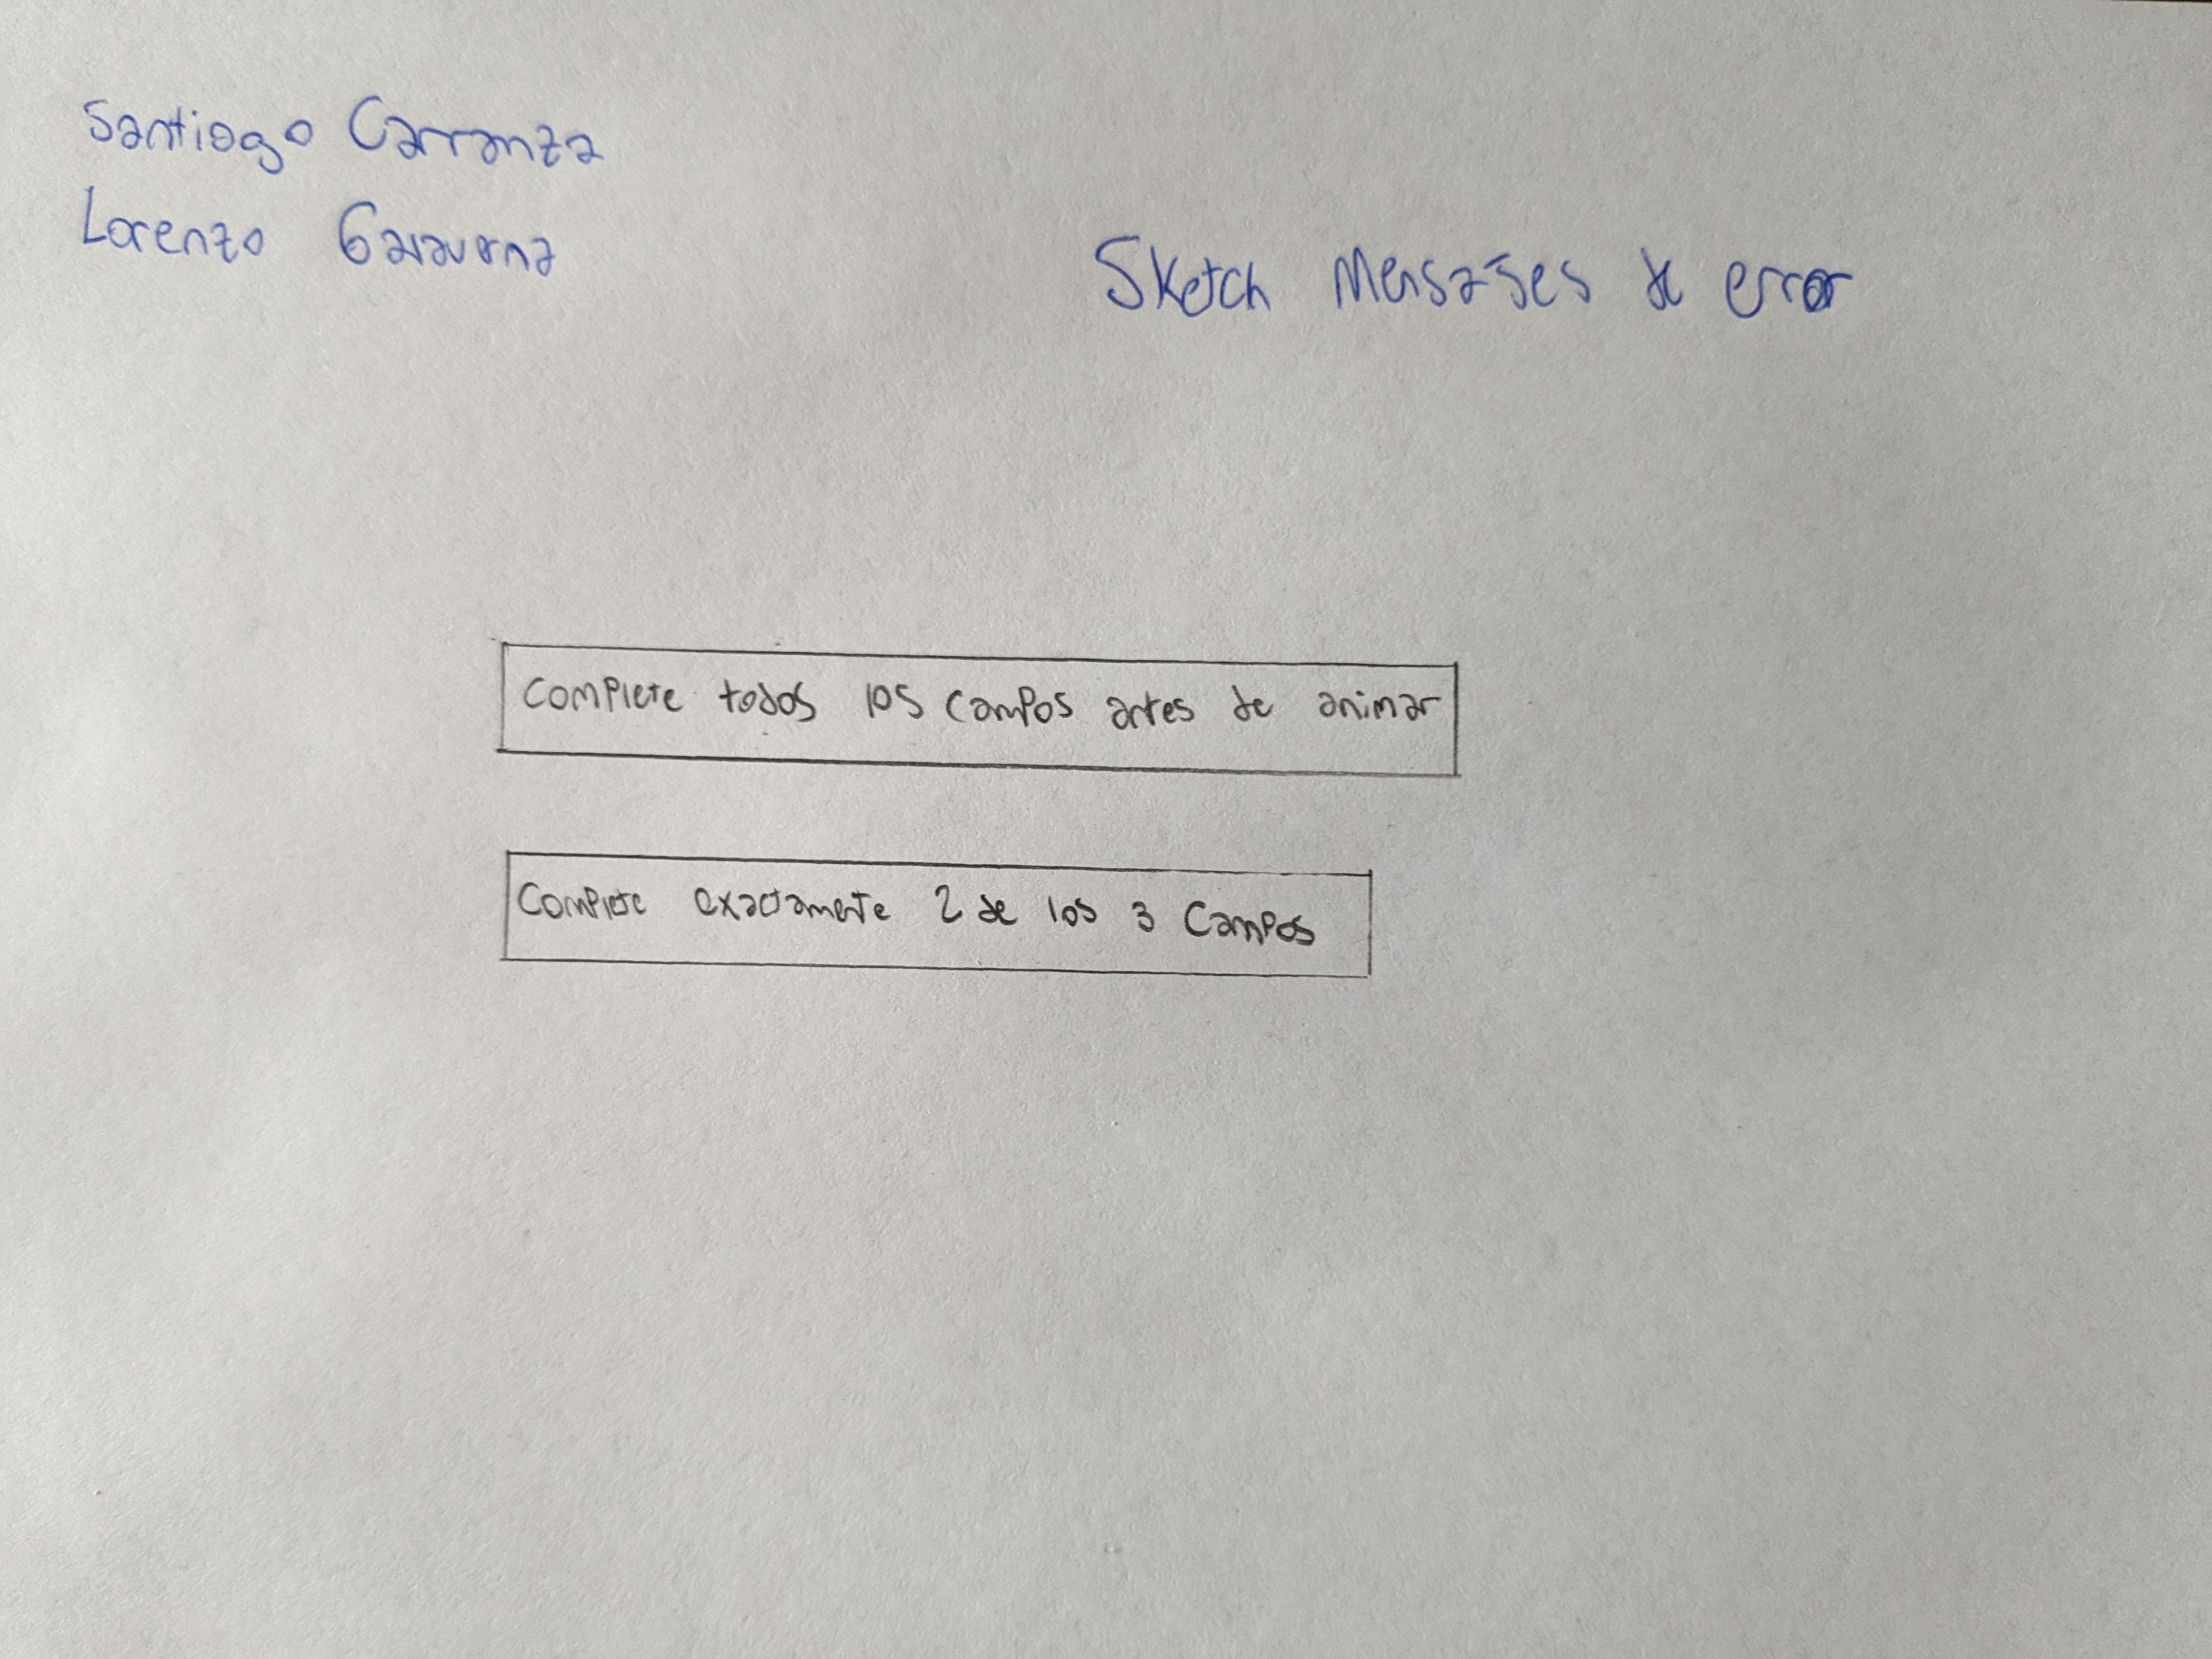 Santiago Carranza
Lorenzo
Sketch Mensajes de error
Complete todos los campos antes de animar
Complete exactamente 2 de los 3 campos